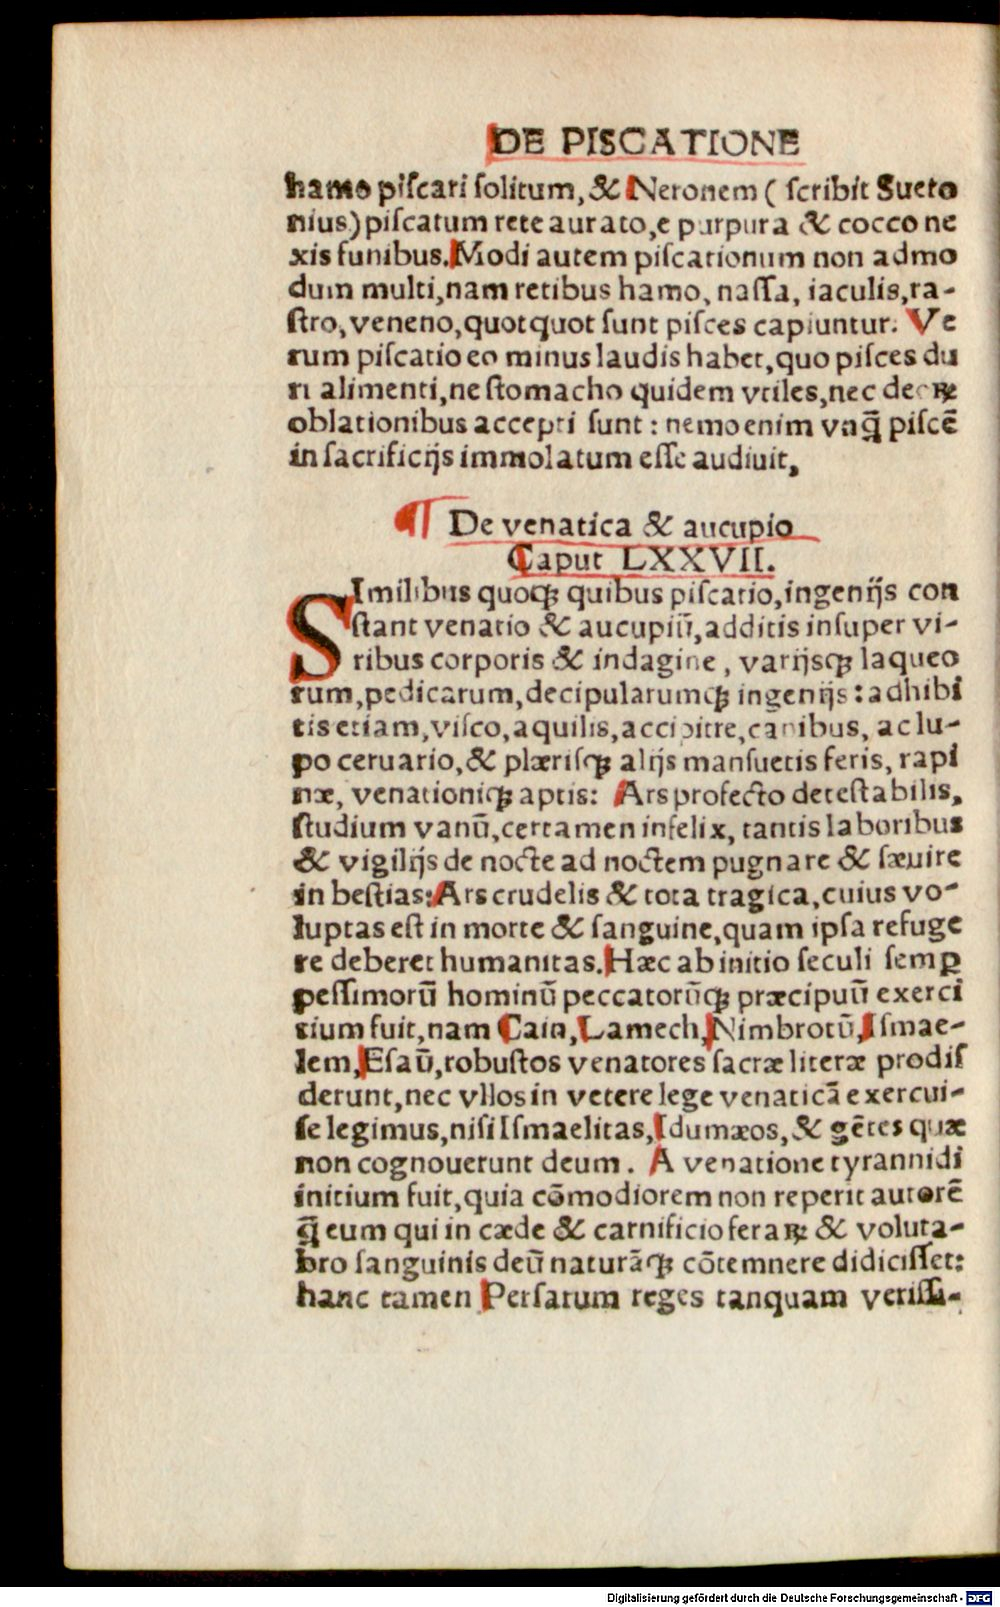 DE PISCATIONE
hamo piſcari ſolitum, & Neronem ( ſcribit Sueto
nius) piſcatum rete aurato, e purpura & cocco ne
xis funibus. Modi autem piſcationum non admo
dum multi, nam retibus hamo, naſſa, iaculis, ra-
ſtro, veneno, quotquot ſunt piſces capiuntur. Ve
rum piſcatio eo minus laudis habet, quo piſces du
ri alimenti, ne ſtomacho quidem vtiles, nec deoꝝ
oblationibus accepti ſunt : nemo enim vnq̃ piſcẽ
in ſacrificijs immolatum eſſe audiuit,
¶ De venatica & aucupio
Caput LXXVII.
SImilibus quoqꝫ quibus piſcatio, ingenijs con
ſtant venatio & aucupiũ, additis inſuper vi-
ribus corporis & indagine, varijsqꝫ laqueo
rum, pedicarum, decipularumqꝫ ingenijs : adhibi
tis etiam, viſco, aquilis, accipitre, canibus, ac lu-
po ceruario, & plæriſqꝫ alijs manſuetis feris, rapi
næ, venationiqꝫ aptis: Ars profecto deteſtabilis,
ſtudium vanũ, certamen infelix, tantis laboribus
& vigilijs de nocte ad noctem pugnare & ſæuire
in beſtias: Ars crudelis & tota tragica, cuius vo-
luptas eſt in morte & ſanguine, quam ipſa refuge
re deberet humanitas. Hæc ab initio ſeculi ſemꝑ
peſſimorũ hominũ peccatorũqꝫ præcipuũ exerci
tium fuit, nam Cain, Lamech, Nimbrotũ, Iſmae-
lem, Eſaũ, robuſtos venatores ſacræ literæ prodiſ
derunt, nec vllos in vetere lege venaticã exercui-
ſe legimus, niſi Iſmaelitas, Idumæos, & gẽtes quæ
non cognouerunt deum. A venatione tyrannidi
initium fuit, quia cõmodiorem non reperit autorẽ
q̃ eum qui in cæde & carnificio feraꝝ & voluta-
bro ſanguinis deũ naturãqꝫ cõtemnere didiciſſet:
hanc tamen Perſarum reges tanquam veriſſi-
Digitalisierung gefördert durch die Deutsche Forschungsgemeinschaft - DFG